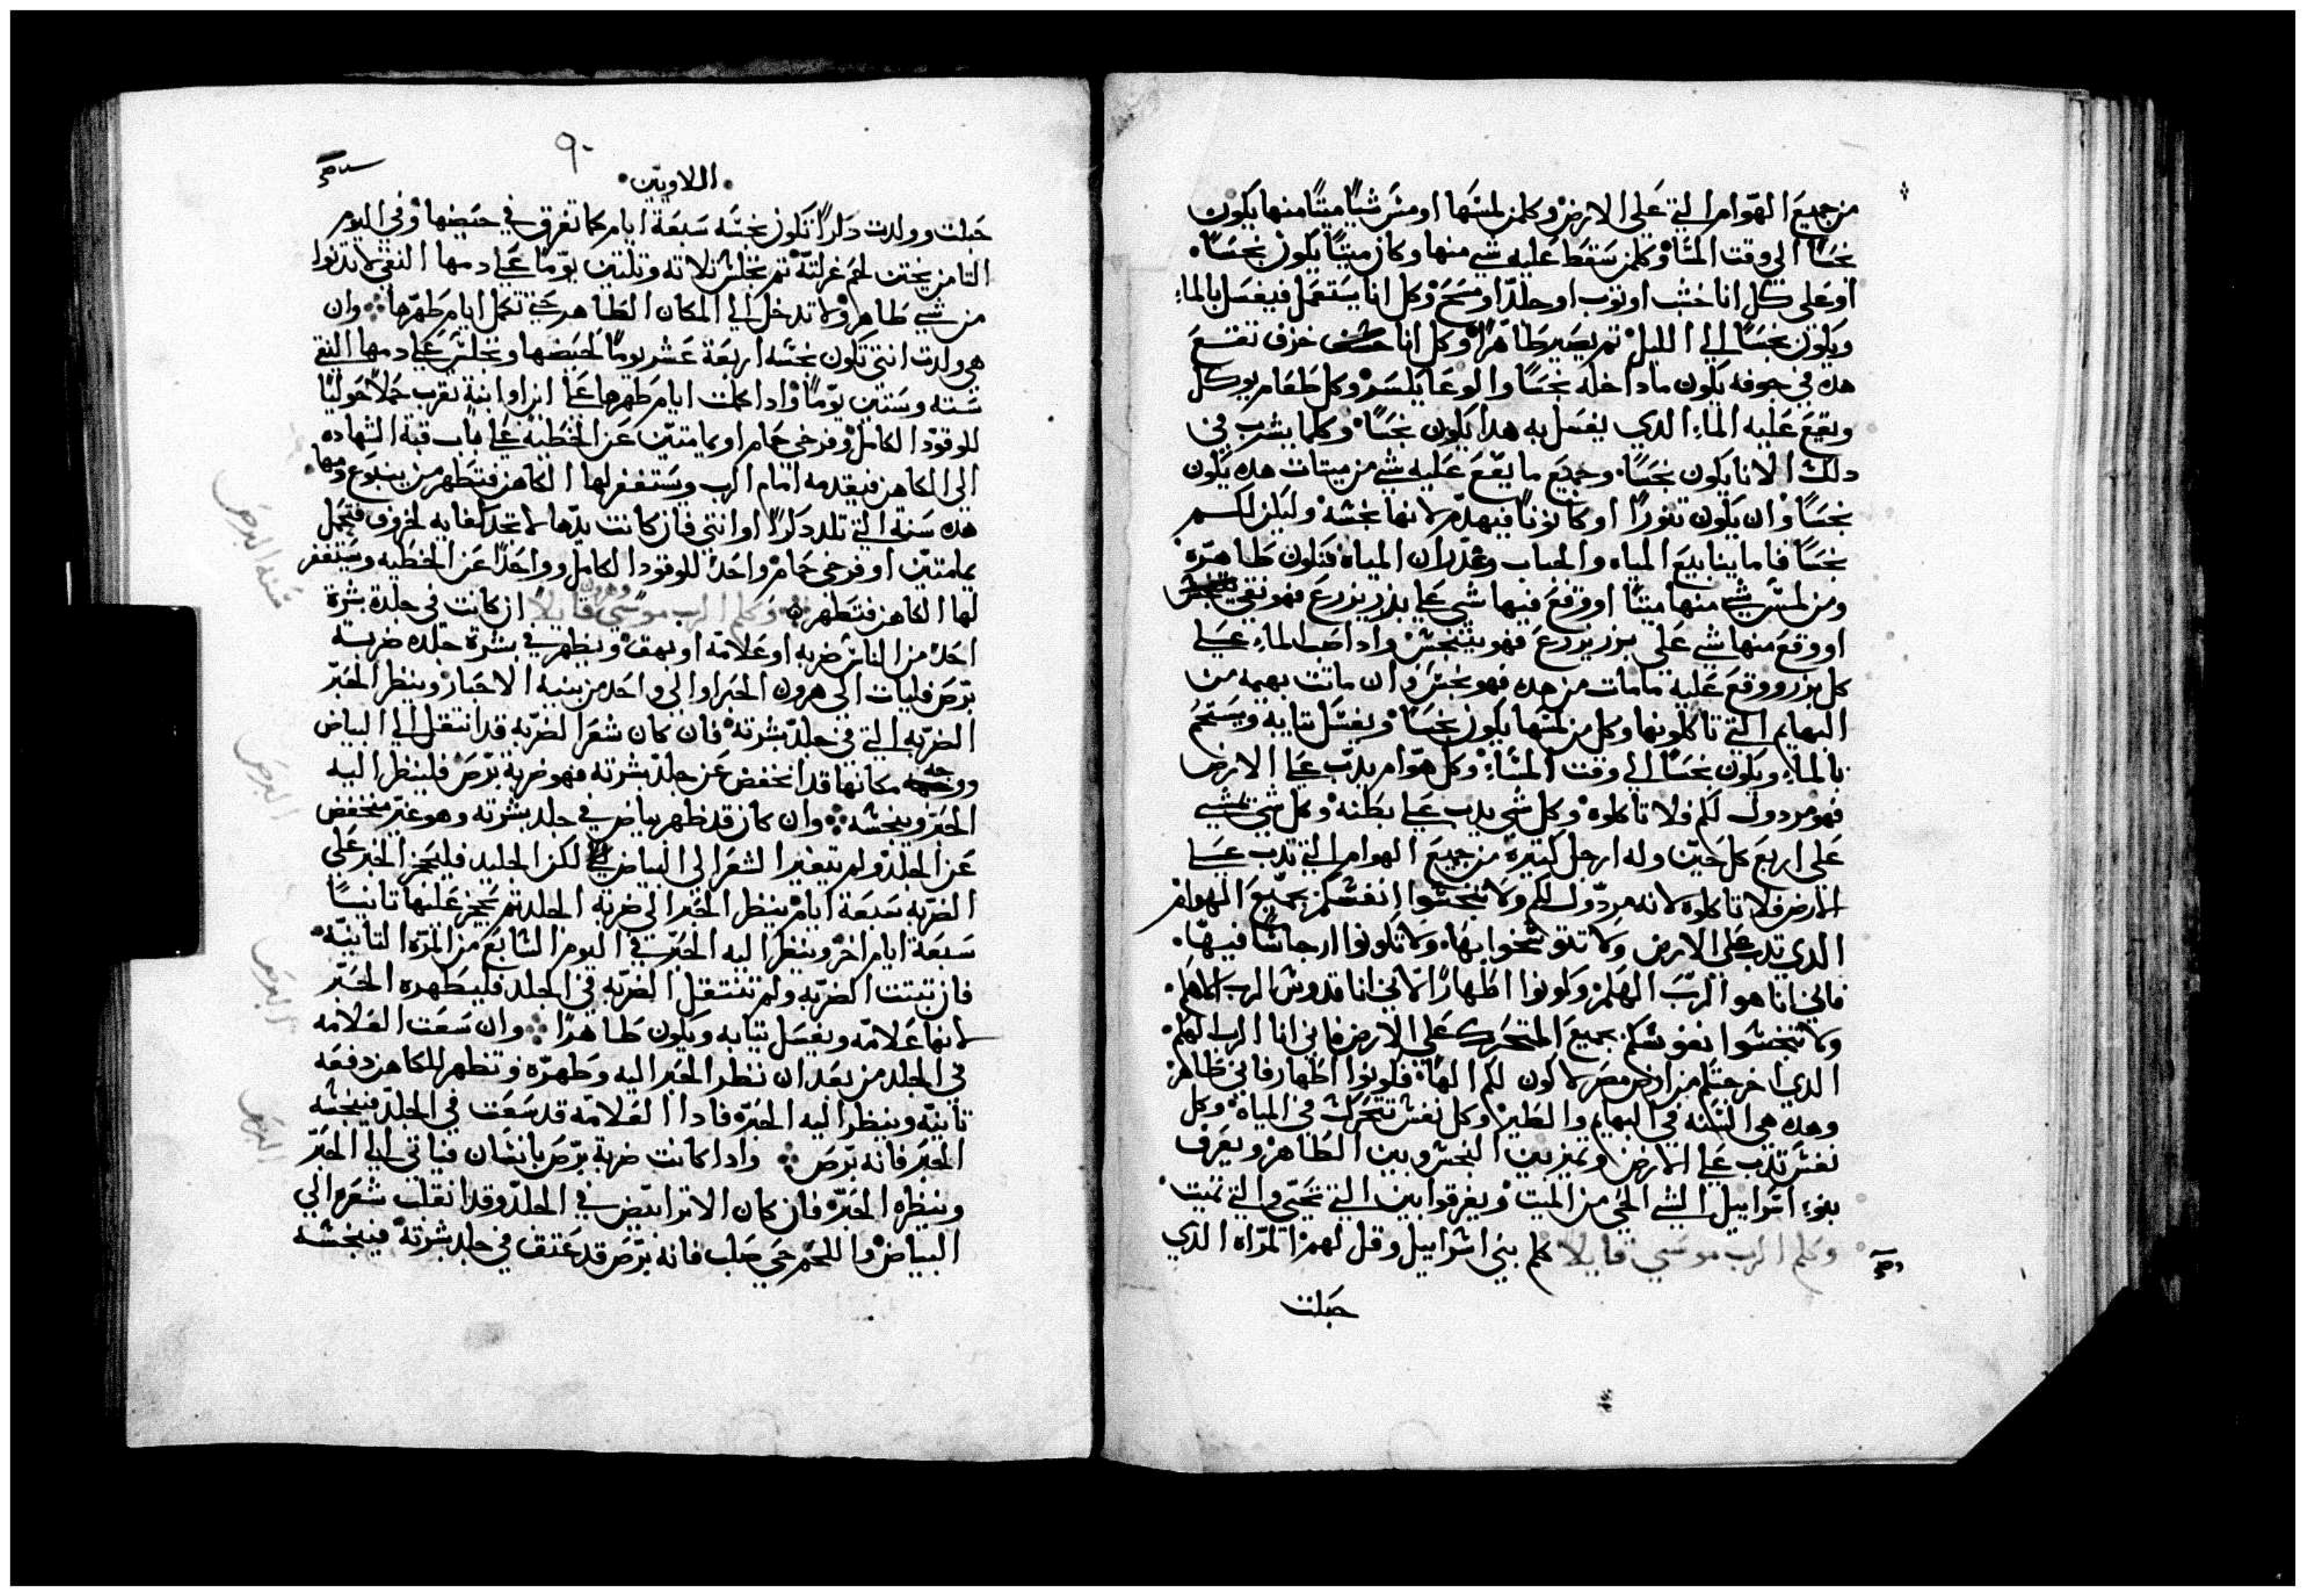 من جميع الهوام التي على الارض وكلمن لمسها او مس شيا ميتا منها يكون
نجسا الي وقت المسا وكلمن سقط عليه شي منها وكان ميتا يكون نجسا
او على كل انا خشب او توب او جلد او مسح وكل انا يستعمل فيغسل بالماء
ويكون نجسا الي الليل تم يصير طاهرا وكل انا خزف تقع
هده في جوفه يكون ماداخله نجسا والوعا يكسر وكل طعام يوكل
ويقع عليه الماء الدي يغسل به هدا يكون نجسا وكلما يشرب في
دلك الانا يكون نجسا وجميع ما يقع عليه شي من ميتات هده يكون
نجسا وان يكون تنورا او كانونا فيهدم لانها نجسه وليكن لكم
نجسا فاما ينابيع المياه والجباب وغدران المياه فتكون طاهره
ومن لمس شي منها ميتا او وقع فيها شي على بدر يزرع فهو نقي
او وقع منها شي على بزر يزرع فهو يتنجس وادا صب الماء علي
كل بزر ووقع عليه مامات من هده فهو نجس وان ماتت بهيمه من
البهايم التي تاكلونها وكل من لمسها يكون نجسا ويغسل تيابه ويستحم
بالماء ويكون نجسا الي وقت المساء وكل هوام يدب علي الارض
فهو مردول لكم فلا تاكلوه وكل شي يدب علي بطنه وكل شي يمشي
على اربع كل حين وله ارجل كتيره من جميع الهوام التي تدب علي
الارض فلا تاكلوه لانه مردول لكم ولا تنجسوا انفسكم بجميع الهوام
الدي تدب على الارض ولا تتوسخوا بها ولا تكونوا ارجاسا فيها
فاني انا هو الرب الهكم وكونوا اطهارا لاني انا قدوس الرب الاهكم
ولا تنجسوا نفوسكم بجميع المتحرك على الارض فاني انا الرب الهكم
الدي اخرجتكم من ارض مصر لاكون لكم الها فكونوا اطهار فاني طاهر
وهده هي السنه في البهايم والطير وكل نفس تتحرك في المياه وكل
نفس تدب علي الارض وتميز بين النجس وبين الطاهر ويعرف
بنوء اسراييل الشي الحي من الميت ويفرقوا بين التي تحيى والتي تميت
وكلم الرب موسي قايلا كلم بني اسراييل وقل لهم المراه الدي
حبلت
٩٠
اللاويين
حبلت وولدت دكرا تكون نجسه سبعة ايام كما تفرق في حيضها وفي اليوم
التامن يختن لحم غرلته تم تجلس تلاته وتلتين يوما علي دمها النقي لا تدنوا
من شي طاهر ولا تدخل الي المكان الطاهر حتي تكمل ايام طهرها وان
هي ولدت انتى تكون نجسه اربعة عشر يوما لحيضها وتجلس علي دمها النقي
سته وستين يوما وادا كملت ايام طهرها علي ابن او ابنة تقرب حملا حوليا
للوقود الكامل وفرخي حمام او يمامتين عن الخطية علي باب قبة الشهاده
الى الكاهن فيقدمه امام الرب ويستغفر لها الكاهن فتطهر من ينبوع دمها
هده سنة التي تلد دكرا او انتى فان كانت يدها لا تجد كفايه لخروف فتحمل
يمامتين او فرخي حمام واحدا للوقود الكامل وواحدا عن الخطيه ويستغفر
لها الكاهن فتطهر وكلم الرب موسي وهرون قايلا ان كانت في جلدة بشرة
احد من الناس ضربه او علامه او بهق ويظهر في بشرة جلده ضربه
برص فليات الى هرون الحبر او الى واحد من بنيه الاحبار وينظر الحبر
الضربه التي في جلد بشرته فان كان شعر الضربه قد انتقل الي البياض
ووجه مكانها قد انخفض عن جلد بشرته فهو ضربة برص فلينظر اليه
الحبر وينجسه وان كان قد ظهر بياض في جلد بشرته وهو غير منخفض
عن الجلد ولم يتغير الشعر الى البياض لكن الجليد فليحجز الحبر على
الضربه سبعة ايام ينظر الحبر الى ضربه الجلد تم يحجز عليها تانيا
سبعة ايام اخر وينظر اليه الحبر في اليوم السابع من المره التانيه
فان تبتت الضربه ولم تنتقل الضربه في الجلد فليطهره الحبر
لانها علامه ويغسل تيابه ويكون طاهرا وان سعت العلامه
في الجلد من بعد ان نظر الحبر اليه وطهره وتظهر للكاهن دفعه
تانيه وينظر اليه الحبر فادا العلامه قد سعت في الجلد فينجسه
الحبر فانه برص وادا كانت ضربة برص بانسان فياتي الي الحبر
وينظره الحبر فان كان الاتر ابيض في الجلد وقد انقلب شعره الي
البياض واللحم حي صلب فانه برص قد عتق في جلد بشرته فينجسه
سنة البرص
البرص
البرص
البرص